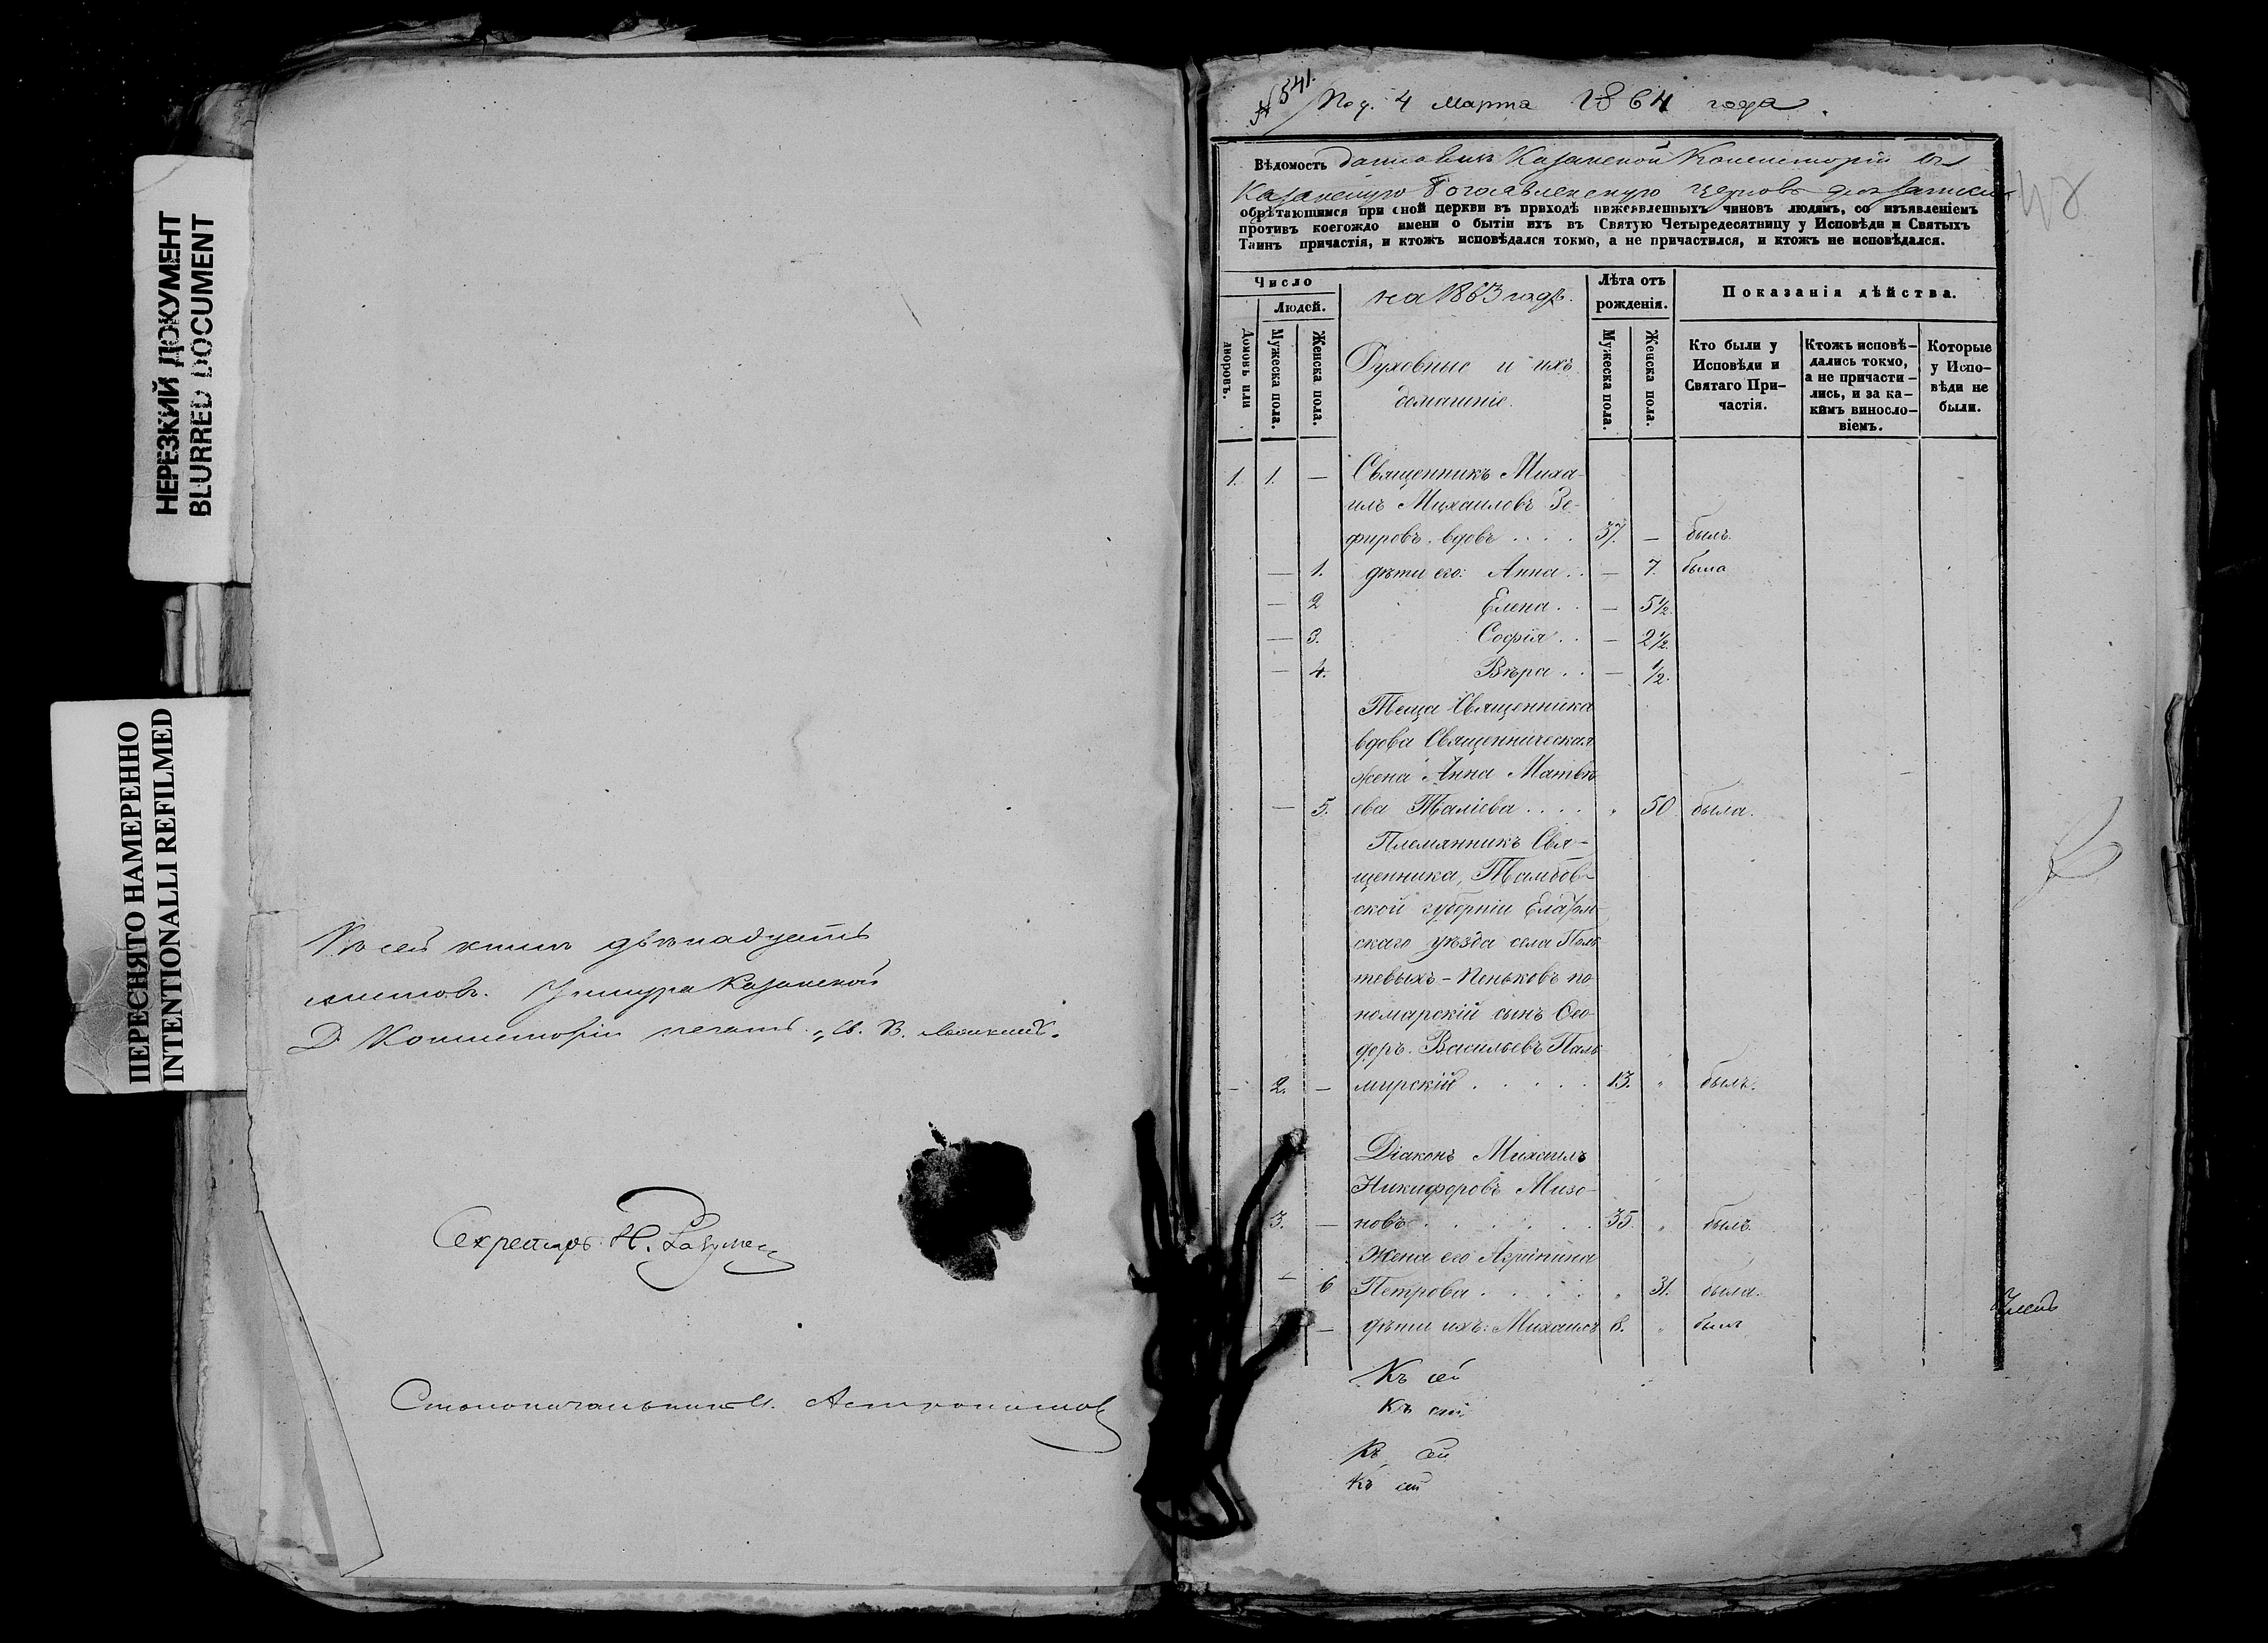 НЕРЕЗКИЙ ДОКУМЕНТ
BLURRED DOCUMENT
ПЕРЕСНЯТО НАМЕРЕННО
INTENTIONALLI REFILMED
Къ сей книгѣ двѣнадцать
листовъ. Казанской
Д Консисторіи печать.
Секретарь Н.
Столоначальникъ
№ 541.
Под. 4 Марта 1864 года.
Вѣдомость данная изъ Казанской Консисторіи въ
Казанскую Богоявленскую церковь для записи
обрѣтающимся при сной церкви въ приходѣ нижеявленныхъ чиновъ людямъ, со изъявленіемъ
противъ коегождо имени о бытіи ихъ въ Святую Четыредесятницу у Исповѣди и Святыхъ
Таинъ причастія, и ктожъ исповѣдался токмо, а не причастился, и ктожъ не исповѣдался.
Число
Людей.
Домовъ или дворовъ.
Мужеска пола.
Женска пола.
на 1863 годъ.
Духовные и ихъ
домашніе.
Лѣта отъ
рожденія.
Мужеска пола.
Женска пола.
Показанія дѣйства.
Кто были у
Исповѣди и
Святаго При-
частія.
Ктожъ исповѣ-
дались токмо,
а не причасти-
лись, и за ка-
кимъ виносло-
віемъ.
Которые
у Испо-
вѣди не
были.
1. 1. — Священникъ Миха-
илъ Михаиловъ Зе-
фировъ. вдовъ . . . . 37. — былъ.
— 1. дѣти его: Анна . . — 7. была
— 2 Елена . . — 5½.
— 3. Софія . . — 2½.
— 4. Вѣра . . — ½.
Теща Священника
вдова Священническая
жена Анна Матвѣ
— 5. ева Таліева . . . . " 50 была.
Племянникъ Свя-
щенника, Тамбов-
ской губерніи Елатом-
скаго уѣзда села Поль
тевыхъ-Пеньковъ по
номарскій сынъ Ѳео-
доръ Васильевъ Паль
— 2. — мирскій . . . . . 13. " былъ.
Діаконъ Михаилъ
Никифоровъ Мизо-
3. — новъ . . . . . . 35. " былъ
Жена его Агрипина
— 6 Петрова . . . . . " 31. была.
— дѣти ихъ: Михаилъ 8. " былъ
Къ сей
Къ сей
Къ сей
Къ сей